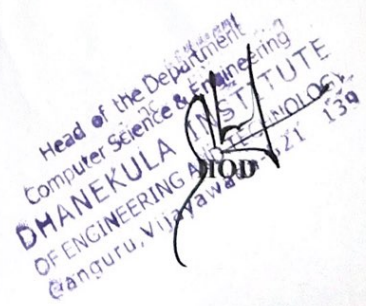 Head of the Department
Computer Science & Engineering
DHANEKULA INSTITUTE
OF ENGINEERING AND TECHNOLOGY
Ganguru, Vijayawada-521 139
HOD